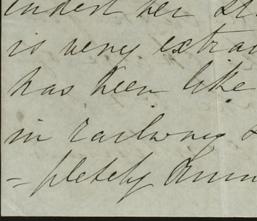 her
is very extra
has been like
in railway
=pletely